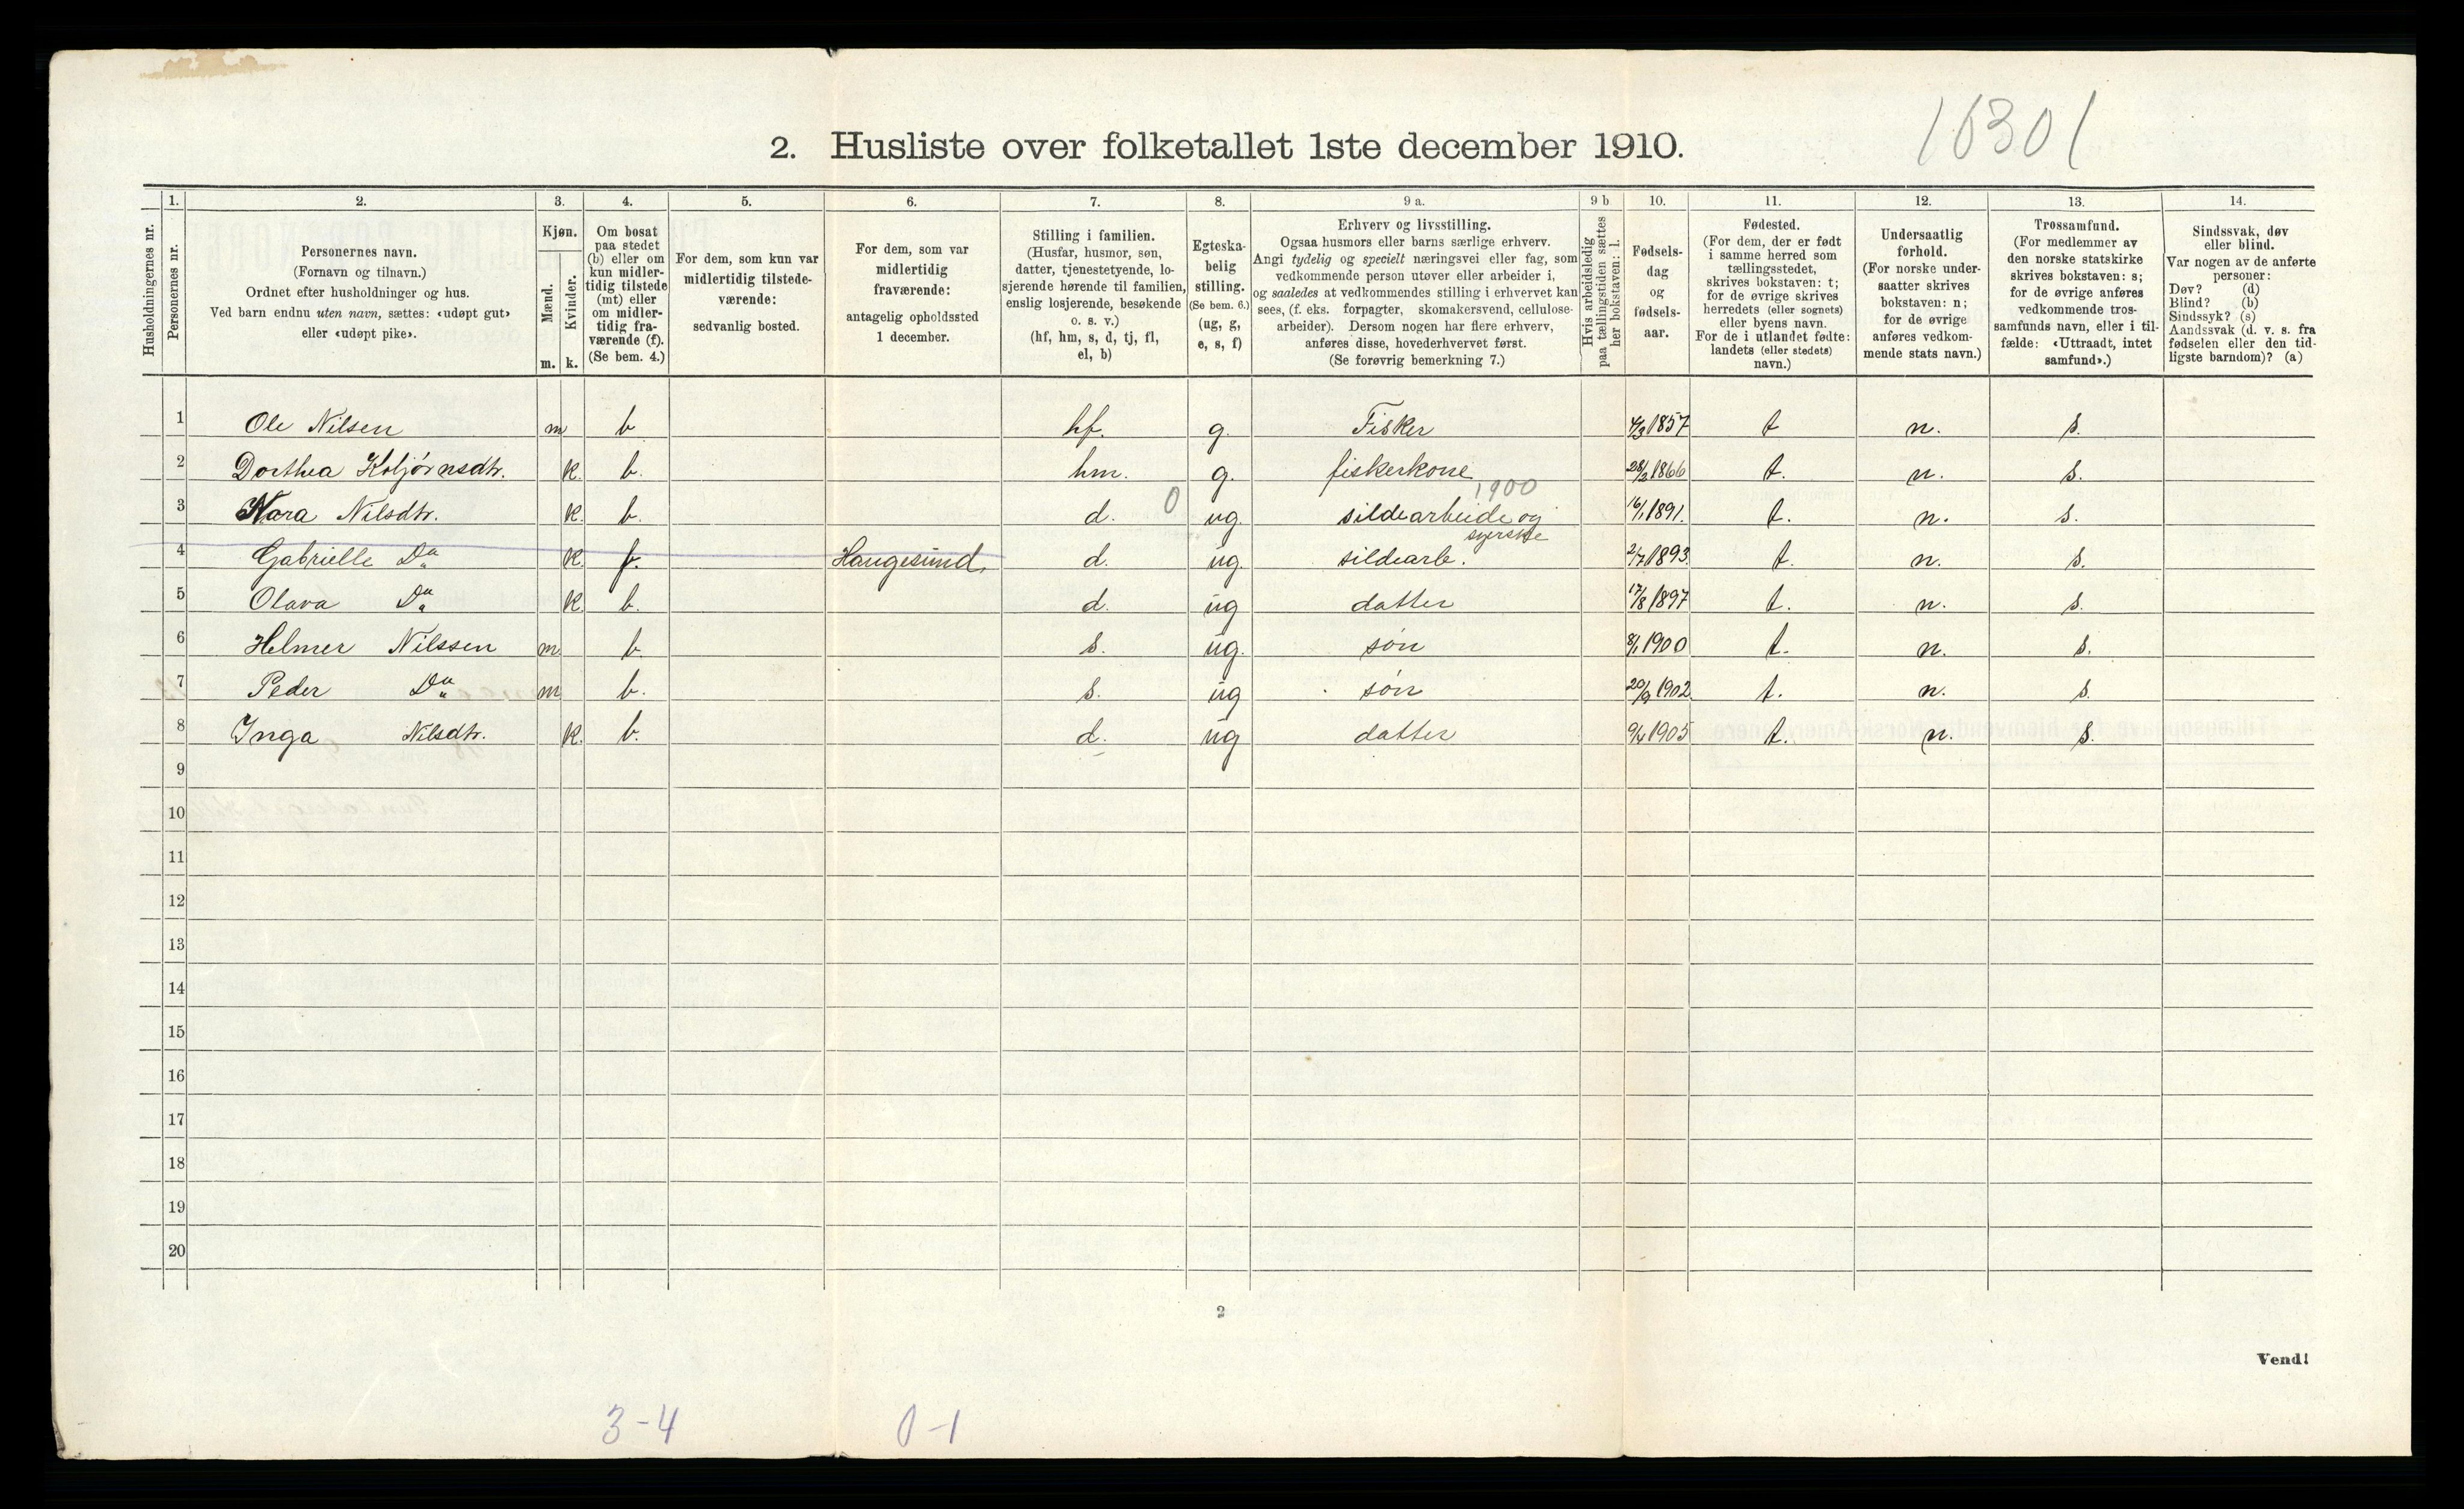 16301
2. Husliste over folketallet 1ste december 1910.
Husholdningernes nr.
1. Personernes nr.
2. Personernes navn.
(Fornavn og tilnavn.)
Ordnet efter husholdninger og hus.
Ved barn endnu uten navn, sættes: «udøpt gut»
eller «udøpt pike».
3. Kjøn.
Mænd. Kvinder.
m. k.
4. Om bosat
paa stedet
(b) eller om
kun midler-
tidig tilstede
(mt) eller
om midler-
tidig fra-
værende (f).
(Se bem. 4.)
5. For dem, som kun var
midlertidig tilstede-
værende:
sedvanlig bosted.
6. For dem, som var
midlertidig
fraværende:
antagelig opholdssted
1 december.
7. Stilling i familien.
(Husfar, husmor, søn,
datter, tjenestetyende, lo-
sjerende hørende til familien,
enslig losjerende, besøkende
o. s. v.)
(hf, hm, s, d, tj, fl,
el, b)
8. Egteska-
belig
stilling.
(Se bem. 6.)
(ug, g,
e, s, f)
9 a. Erhverv og livsstilling.
Ogsaa husmors eller barns særlige erhverv.
Angi tydelig og specielt næringsvei eller fag, som
vedkommende person utøver eller arbeider i,
og saaledes at vedkommendes stilling i erhvervet kan
sees, (f. eks. forpagter, skomakersvend, cellulose-
arbeider). Dersom nogen har flere erhverv,
anføres disse, hovederhvervet først.
(Se forøvrig bemerkning 7.)
9 b Hvis arbeidsledig
paa tællingstiden sættes
her bokstaven: l.
10. Fødsels-
dag
og
fødsels-
aar.
11. Fødested.
(For dem, der er født
i samme herred som
tællingsstedet,
skrives bokstaven: t;
for de øvrige skrives
herredets (eller sognets)
eller byens navn.
For de i utlandet fødte:
landets (eller stedets)
navn.)
12. Undersaatlig
forhold.
(For norske under-
saatter skrives
bokstaven: n;
for de øvrige
anføres vedkom-
mende stats navn.)
13. Trossamfund.
(For medlemmer av
den norske statskirke
skrives bokstaven: s;
for de øvrige anføres
vedkommende tros-
samfunds navn, eller i til-
fælde: «Uttraadt, intet
samfund».)
14. Sindssvak, døv
eller blind.
Var nogen av de anførte
personer:
Døv? (d)
Blind? (b)
Sindssyk? (s)
Aandssvak (d. v. s. fra
fødselen eller den tid-
ligste barndom)? (a)
1 Ole Nilsen m b hf. g. Fisker 4/3 1857 t n. s.
2 Dorthea Koljörnsdtr. k. b. hm. g. fiskerkone 28/2 1866 t. n. s.
1900
3 Nora Nilsdtr. k. b. d. 0 ug. sildearbeide og 16/1 1891. t. n. s.
syerske
4 Gabrielle Do k. f. Haugesund, d. ug. sildearb. 2/7 1893. t. n. s.
5 Olava Do k. b. d. ug datter 17/8 1897 t. n. s.
6 Helmer Nilssen m. b. s. ug. søn 8/1 1900 t. n. s.
7 Peder Do m b. s. ug søn 20/9 1902. t. n. s.
8 Inga Nilsdtr. k. b. d. ug datter 9/4 1905 t. n. s.
9
10
11
12
13
14
15
16
17
18
19
20
2
Vend!
3-4 0-1